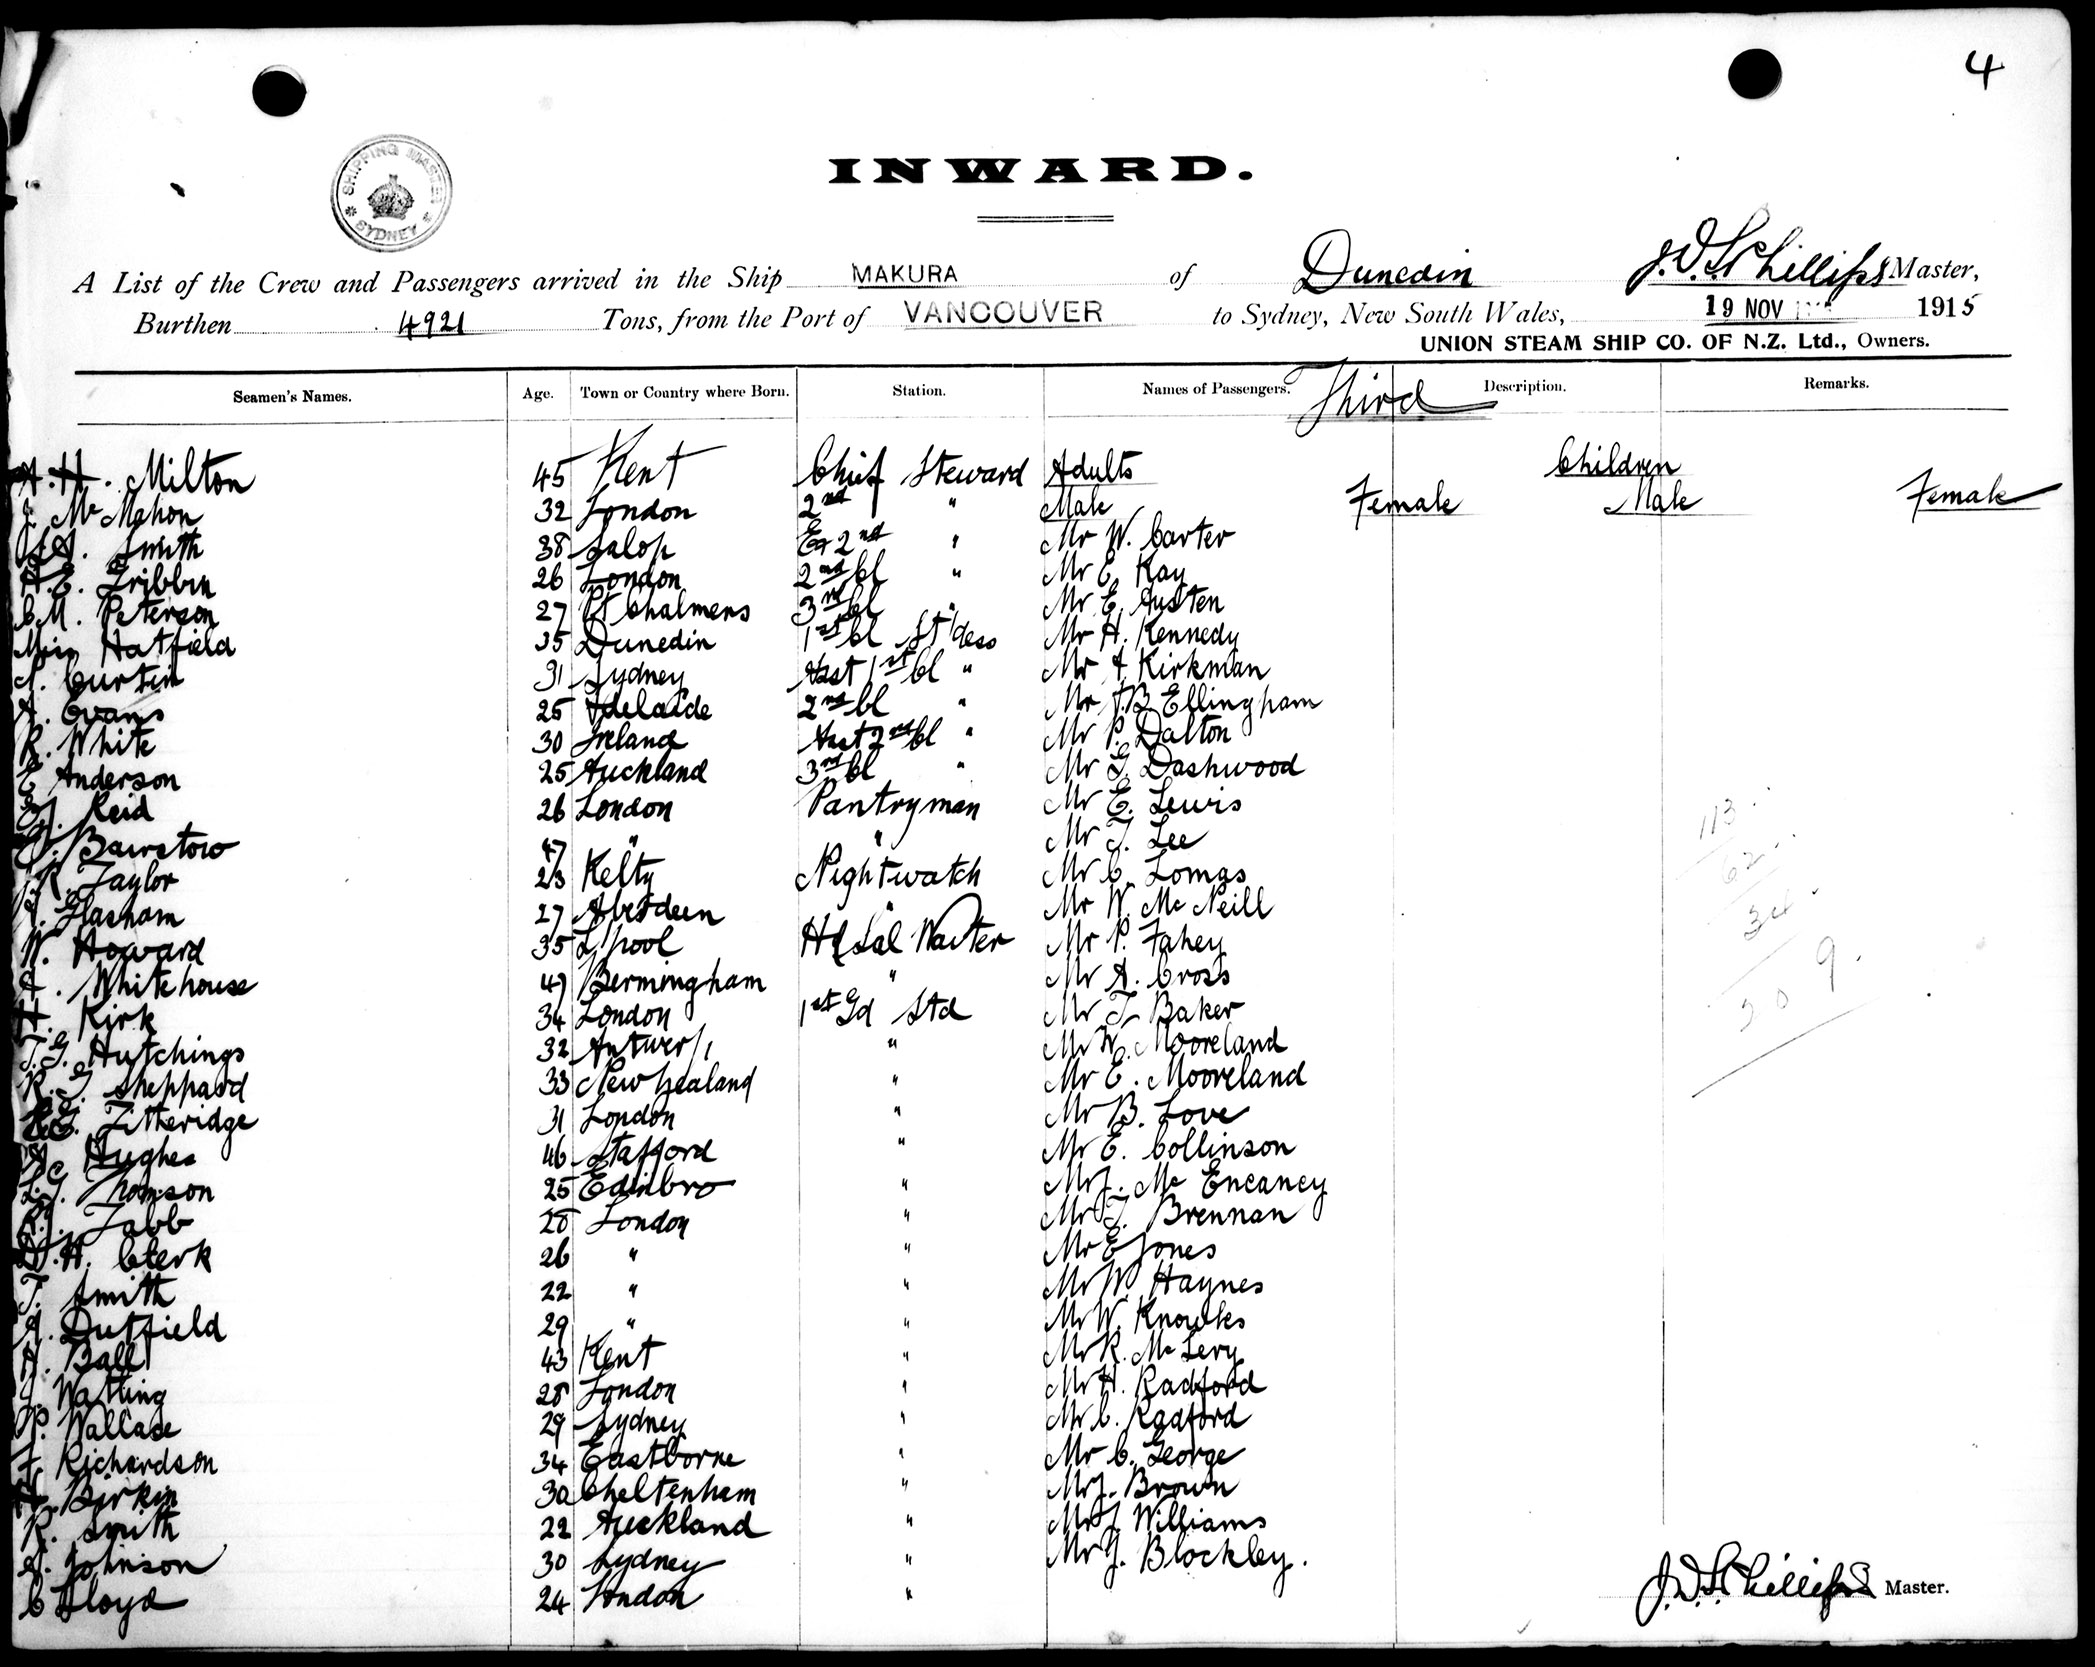 4
INWARD.
SHIPPING MASTER
SYDNEY
A List of the Crew and Passengers arrived in the Ship MAKURA of Dunedin J.D.S. Phillips Master,
Burthen 4921 Tons, from the Port of VANCOUVER to Sydney, New South Wales, 19 NOV 1915
UNION STEAM SHIP CO. OF N.Z. Ltd., Owners.
Seamen's Names. Age. Town or Country where Born. Station. Names of Passengers. Third Description. Remarks.
A. H. Milton 45 Kent Chief Steward Adults Children
J. McMahon 32 London 2nd " Male Female Male Female
Smith 38 Salop Ex 2nd " Mr W. Carter
H.E. Gribbin 26 London 2nd bl " Mr E. Kay
C.M. Peterson 27 Pt Chalmers 3rd bl " Mr E. Austen
Miss Hatfield 35 Dunedin 1st bl St'dess Mr H. Kennedy
Curtin 31 Sydney Asst 1st bl " Mr A Kirkman
A. Evans 25 Adelaide 2nd bl " Mr J.B. Ellingham
R. White 30 Ireland Asst 2nd bl " Mr P. Dalton
E Anderson 25 Auckland 3rd bl " Mr G. Dashwood
Reid 26 London Pantryman Mr E. Lewis
Bairstow 47 " " Mr T. Lee
R. Taylor 23 Kelty Nightwatch Mr C. Lomas
Glasham 27 Aberdeen " Mr W. McNeill
W. Howard 35 L'pool Hd Sal Waiter Mr P. Fahey
A. Whitehouse 49 Bermingham " Mr A. Cross
H. Kirk 34 London 1st Gd Std Mr T. Baker
T.G. Hutchings 32 Antwerp " Mr W. Mooreland
R.G. Sheppard 33 New Zealand " Mr E. Mooreland
Titteridge 31 London " Mr B. Love
Hughes 46 Stafford " Mr E. Collinson
L.G. Thomson 25 Edinbro " Mr J. McEneaney
R.J. Tabb 28 London " Mr T. Brennan
H. Clerk 26 " " Mr E Jones
T. Smith 22 " " Mr W. Haynes
A. Duffield 29 " " Mr W. Knowles
A. Ball 43 Kent " Mr R. McLevy
J. Watling 28 London " Mr H. Radford
P. Wallace 29 Sydney " Mr C. Radford
F. Richardson 34 Eastborne " Mr C. George
H. Birkin 30 Cheltenham " Mr J. Brown
R. Smith 22 Auckland " Mr J. Williams
A. Johnson 30 Sydney " Mr J. Blockley.
C Lloyd 24 London "
113
62
34
209
J.D.S. Phillips Master.